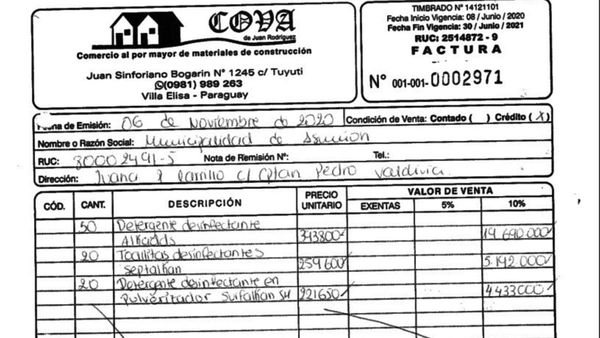 COVA
de Juan Rodríguez
Comercio al por mayor de materiales de construcción
Juan Sinforiano Bogarin N° 1245 c/ Tuyuti
(0981) 989 263
Villa Elisa - Paraguay
TIMBRADO N° 14121101
Fecha Inicio Vigencia: 08 / Junio / 2020
Fecha Fin Vigencia: 30 / Junio / 2021
RUC: 2514872 - 9
FACTURA
N° 001-001- 0002971
Fecha de Emisión: 06 de Noviembre de 2020 Condición de Venta: Contado ( ) Crédito (X)
Nombre o Razón Social: Municipalidad de Asunción
RUC: 80002491-5 Nota de Remisión N°: Tel.:
Dirección: c/ Pedro Valdivia
CÓD. CANT. DESCRIPCIÓN PRECIO UNITARIO VALOR DE VENTA
EXENTAS 5% 10%
50 Detergente desinfectante
393800 19.690.000
20 Toallitas desinfectantes
259600 5.192.000
20 Detergente desinfectante en
Pulverizador 221650 4433000